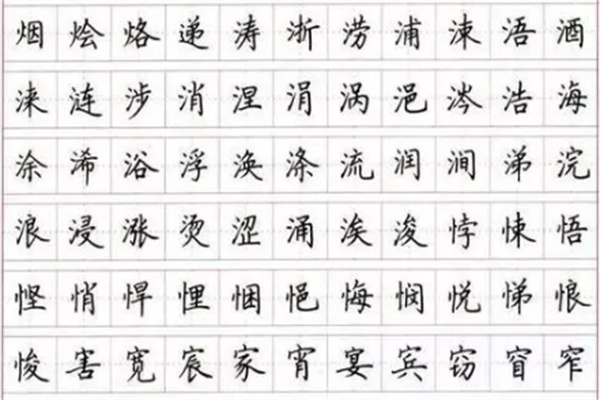 烟烩烙递涛浙涝浦涑浯酒
涞涟涉消涅涓涡浥涔浩海
涂浠浴浮涣涤流润涧涕浣
浪浸涨烫涩涌涘浚悖悚悟
悭悄悍悝悃悒悔悯悦悌悢
悛害宽宸家宵宴宾窍窅窄